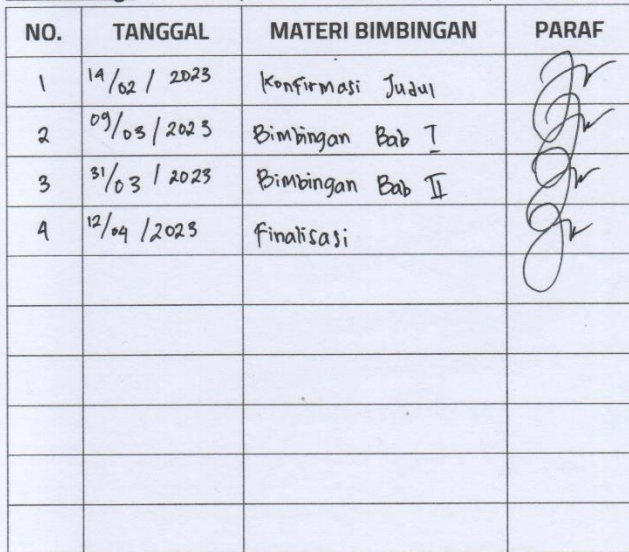 NO. TANGGAL MATERI BIMBINGAN PARAF
1 14/02 / 2023 Konfirmasi Judul
2 09/03 / 2023 Bimbingan Bab I
3 31/03 / 2023 Bimbingan Bab II
4 12/04 / 2023 Finalisasi